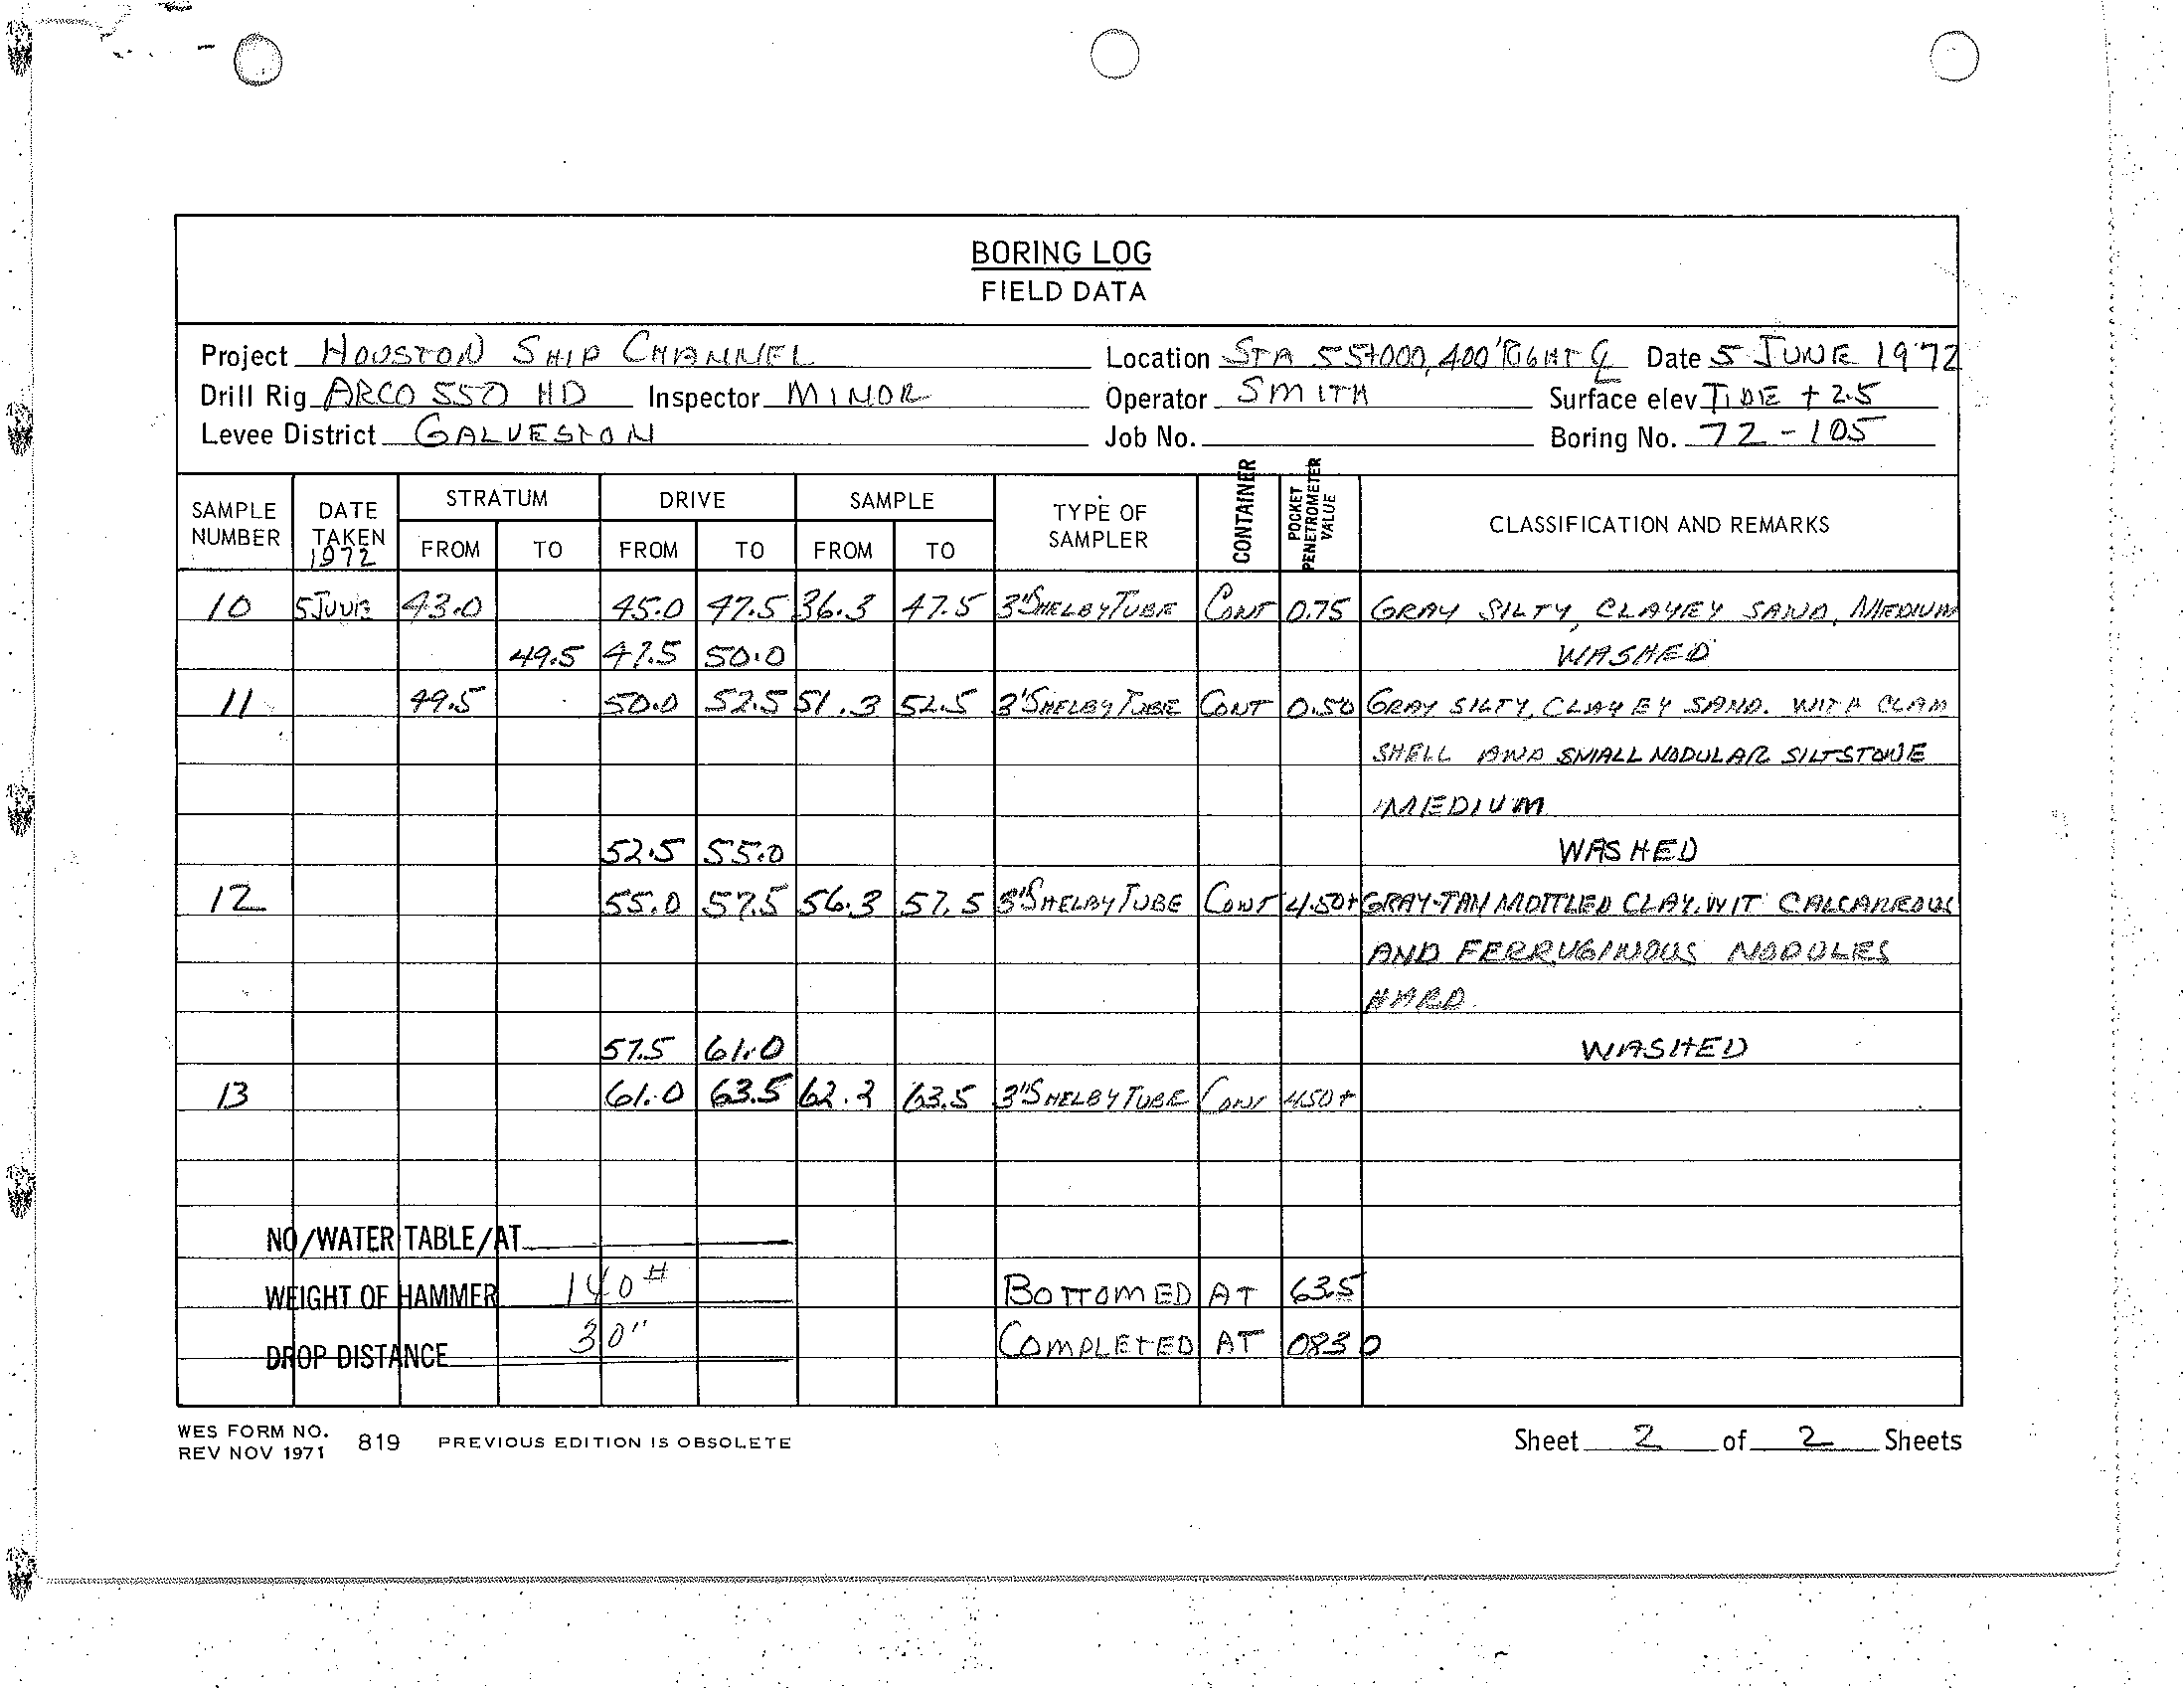 BORING LOG
FIELD DATA
Project HOUSTON SHIP CHANNEL Location STA 55+000, 400' RIGHT ℄ Date 5 JUNE 1972
Drill Rig ARCO 550 HD Inspector MINOR Operator SMITH Surface elev TIDE + 2.5
Levee District GALVESTON Job No. Boring No. 72-105
SAMPLE NUMBER DATE TAKEN 1972 STRATUM FROM TO DRIVE FROM TO SAMPLE FROM TO TYPE OF SAMPLER CONTAINER POCKET PENETROMETER VALUE CLASSIFICATION AND REMARKS
10 5 JUNE 43.0 45.0 47.5 36.3 47.5 3" SHELBY TUBE CONT 0.75 GRAY SILTY, CLAYEY SAND, MEDIUM
49.5 47.5 50.0 WASHED
11 49.5 50.0 52.5 51.3 52.5 3" SHELBY TUBE CONT 0.50 GRAY SILTY, CLAYEY SAND. WITH CLAM
SHELL AND SMALL NODULAR SILTSTONE
MEDIUM
52.5 55.0 WASHED
12 55.0 57.5 56.3 57.5 3" SHELBY TUBE CONT 4.50+ GRAY-TAN MOTTLED CLAY, WIT CALCARREOUS
AND FERRUGINOUS NODULES
HARD
57.5 61.0 WASHED
13 61.0 63.5 62.2 63.5 3" SHELBY TUBE CONT 4.50+
NO/WATER TABLE/AT
WEIGHT OF HAMMER 140# BOTTOMED AT 63.5
DROP DISTANCE 30" COMPLETED AT 0830
WES FORM NO. 819 PREVIOUS EDITION IS OBSOLETE Sheet 2 of 2 Sheets
REV NOV 1971